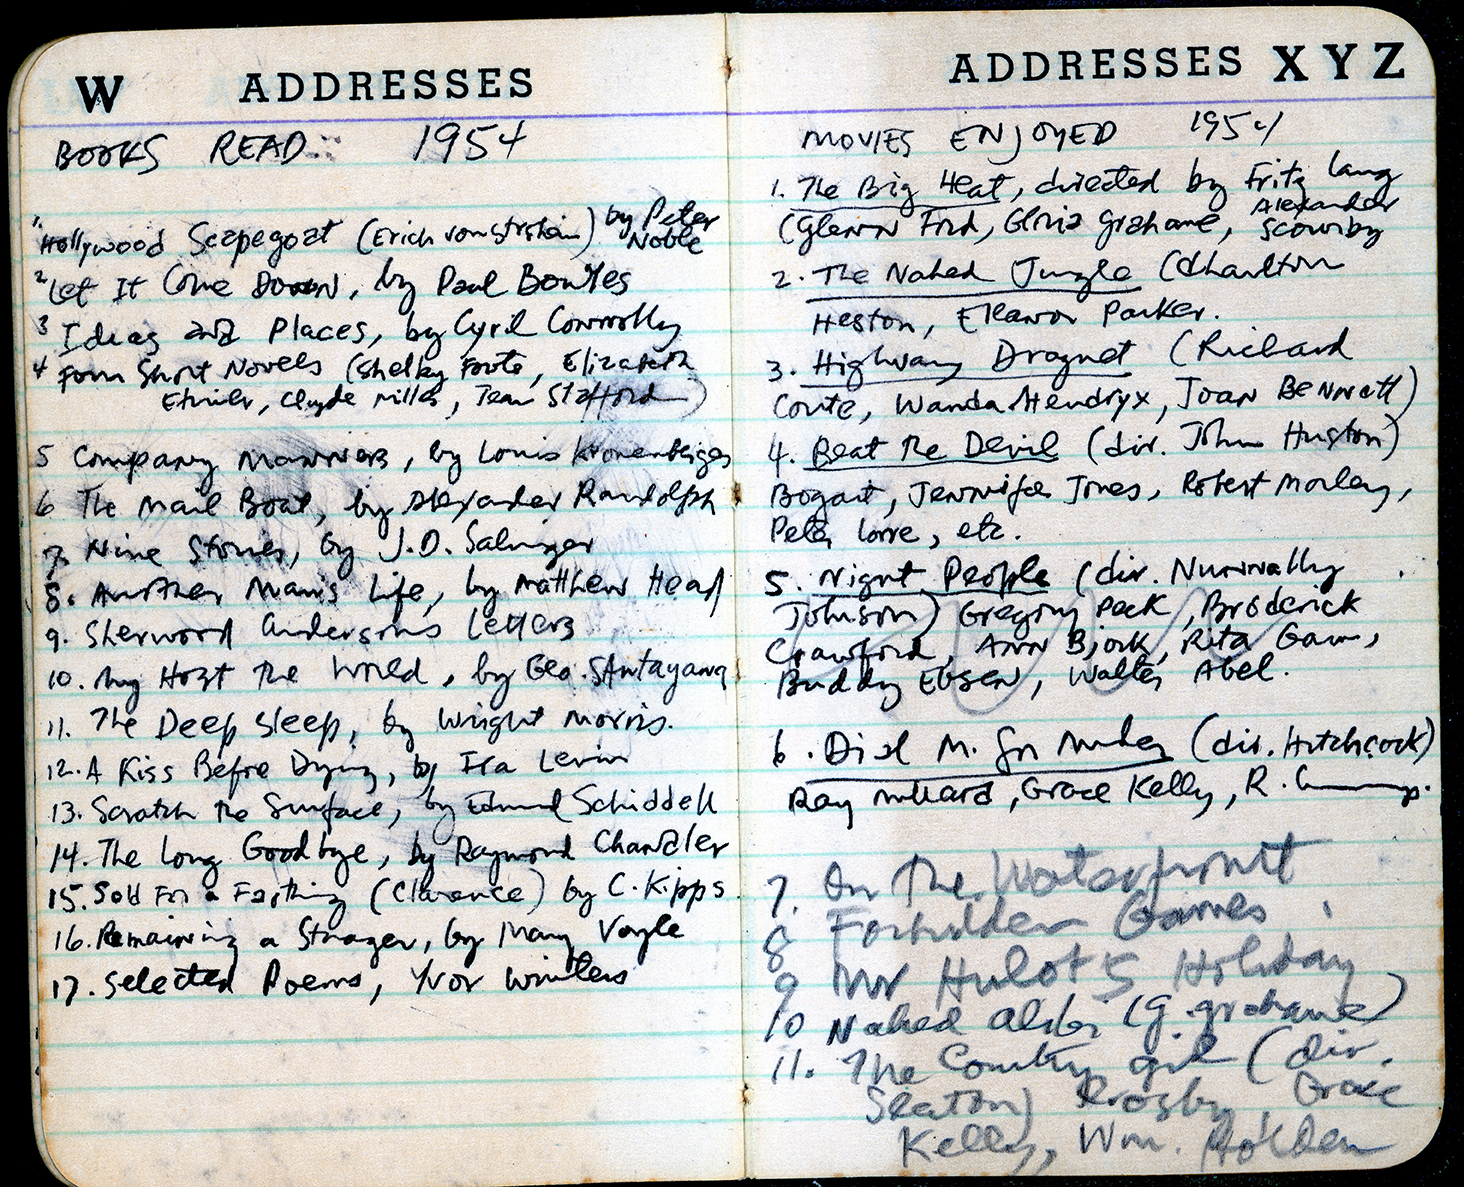 W ADDRESSES
BOOKS READ 1954
1. Hollywood Scapegoat (Erich von Stroheim) by Peter
Noble
2 Let It Come Down, by Paul Bowles
3 Ideas and Places, by Cyril Connolly
4 Four Short Novels (Shelby Foote, Elizabeth
Etnier, Clyde Miller, Jean Stafford)
5 Company Manners, by Louis Kronenberger
6 The Mail Boat, by Alexander Randolph
7. Nine Stories, by J.D. Salinger
8. Another Man's Life, by Matthew Head
9. Sherwood Andersons Letters
10. My Host the World, by Geo. Santayana
11. The Deep Sleep, by Wright Morris.
12. A Kiss Before Dying, by Ira Levin
13. Scratch the Surface, by Edmund Schiddell
14. The Long Goodbye, by Raymond Chandler
15. Sold For a Farthing (Clarence) by C. Kipps
16. Remaining a Stranger, by Mary Voyle
17. Selected Poems, Yvor Winters
ADDRESSES X Y Z
MOVIES ENJOYED 1954
1. The Big Heat, directed by Fritz Lang
(Glenn Ford, Gloria Grahame, Alexander
Scourby
2. The Naked Jungle (Charlton
Heston, Eleanor Parker.
3. Highway Dragnet (Richard
Conte, Wanda Hendryx, Joan Bennett)
4. Beat the Devil (dir. John Huston)
Bogart, Jennifer Jones, Robert Morley,
Peter Lorre, etc.
5. Night People (dir. Nunnally
Johnson) Gregory Peck, Broderick
Crawford, Ann Bjork, Rita Gam,
Buddy Ebsen, Walter Abel.
6. Dial M. for Murder (dir. Hitchcock)
Ray Milland, Grace Kelly, R.
7. On The Waterfront
8 Forbidden Games
9 Mr Hulot's Holiday
10 Naked Alibi (G. Grahame)
11. The Country Girl (dir.
Seaton) Crosby, Grace
Kelly, Wm. Holden